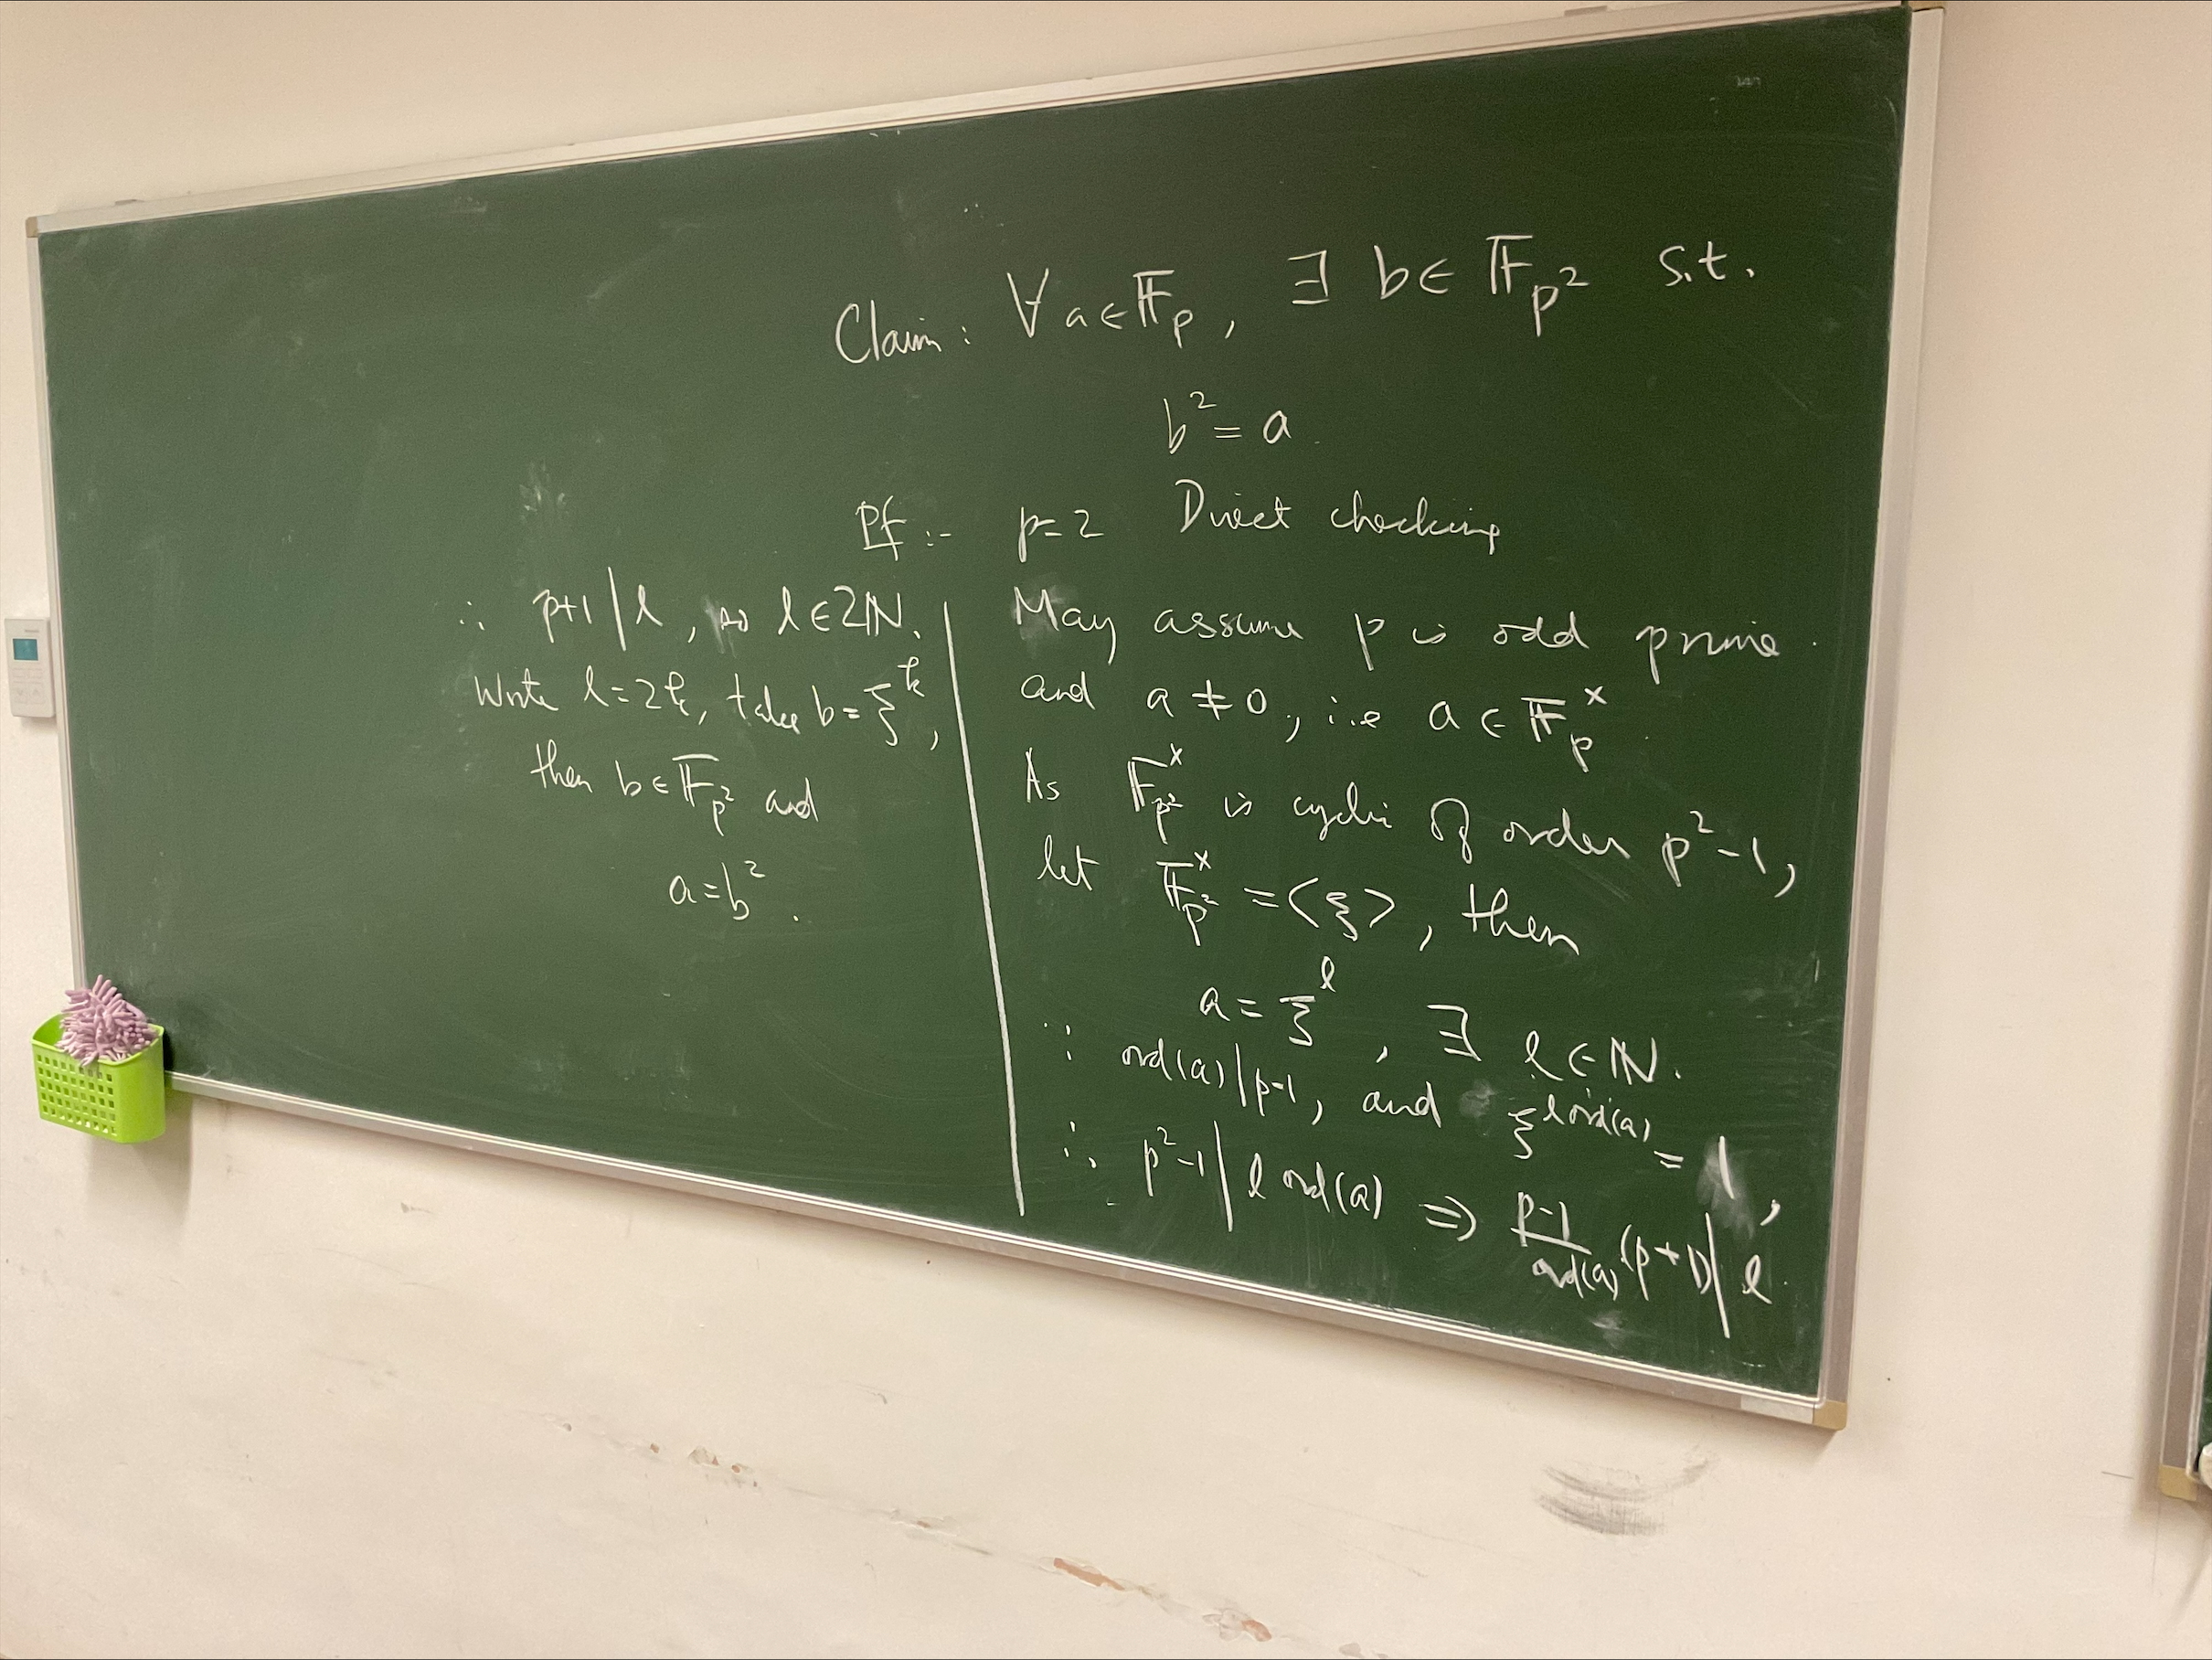 Claim: ∀ a ∈ 𝔽_p, ∃ b ∈ 𝔽_{p²} s.t.
b² = a.
Pf :- p = 2 Direct checking
May assume p is odd prime.
and a ≠ 0, i.e a ∈ 𝔽_p^×.
As 𝔽_{p²}^× is cyclic of order p²-1,
let 𝔽_{p²}^× = <ξ>, then
a = ξ^l, ∃ l ∈ ℕ.
∵ ord(a) | p-1, and ξ^{l ord(a)} = 1,
∴ p²-1 | l ord(a) ⇒ \frac{p-1}{ord(a)} (p+1) | l.
∴ p+1 | l, so l ∈ 2ℕ.
Write l = 2k, take b = ξ^k,
then b ∈ 𝔽_{p²} and
a = b².